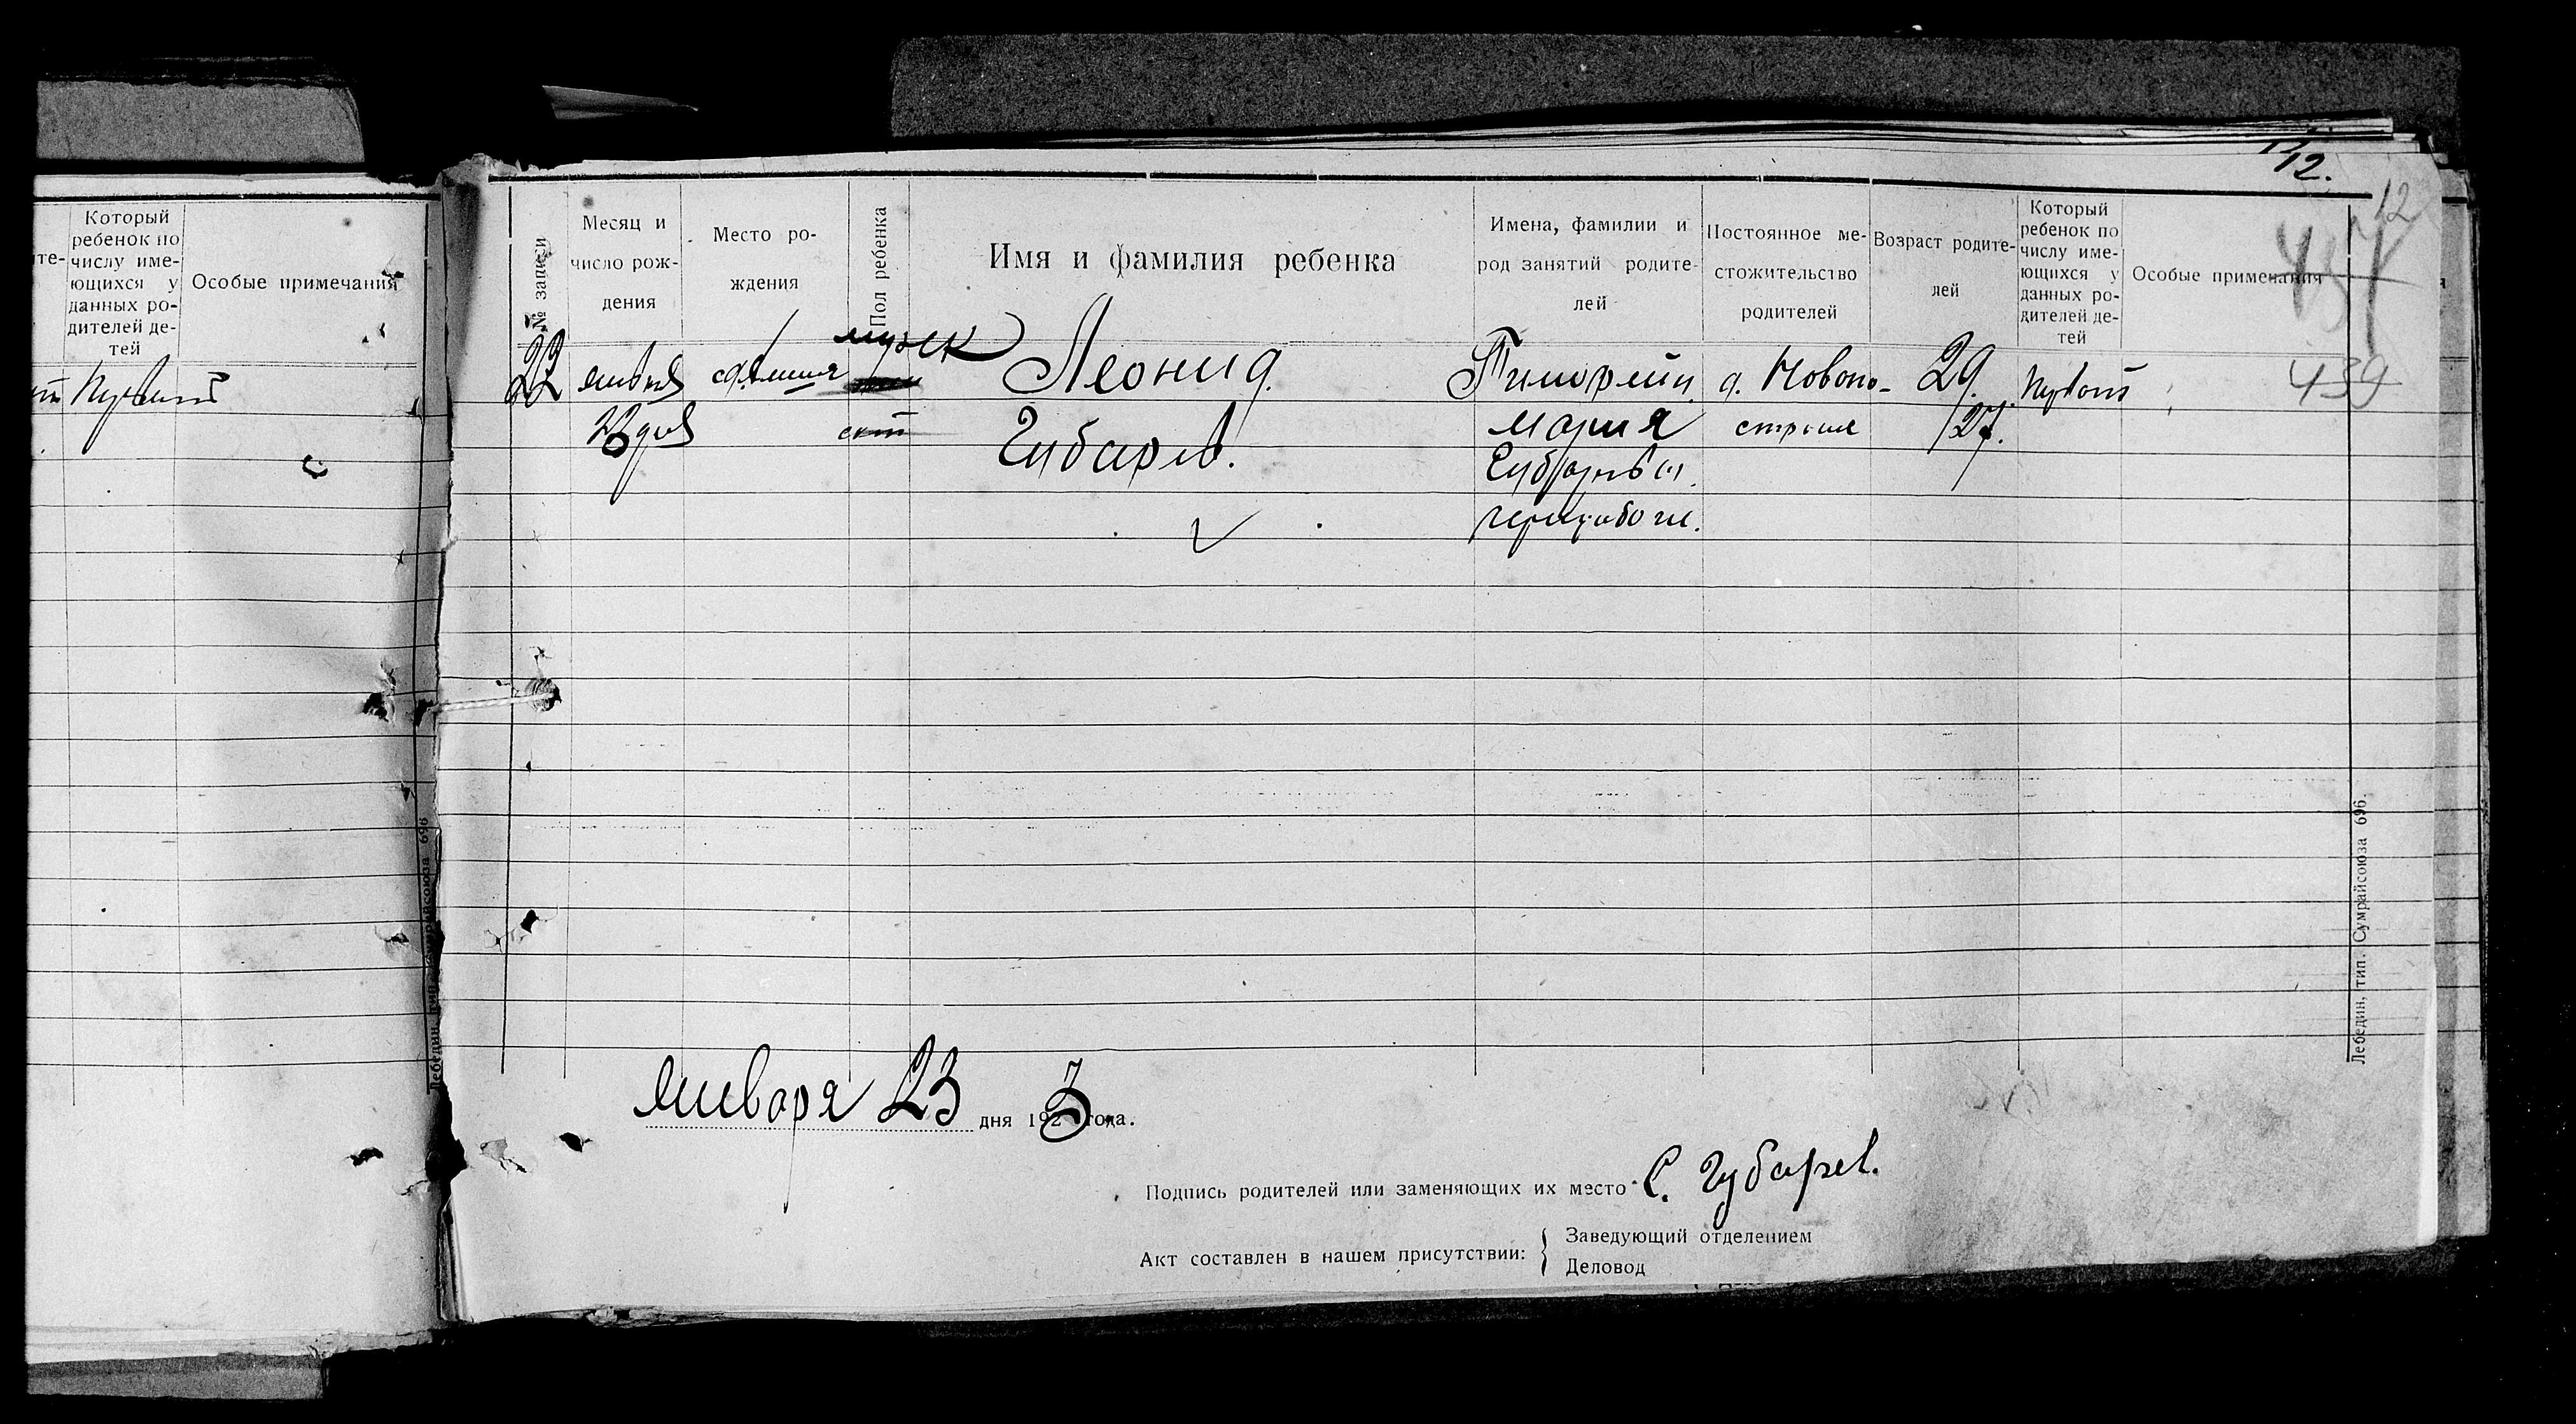 12.
12
439
те-
Который
ребенок по
числу име-
ющихся у
данных ро-
дителей де-
тей
Особые примечания
№ записи
Месяц и
число рож-
дения
Место ро-
ждения
Пол ребенка
Имя и фамилия ребенка
Имена, фамилии и
род занятий родите-
лей
Постоянное ме-
стожительство
родителей
Возраст родите-
лей
Который
ребенок по
числу име-
ющихся у
данных ро-
дителей де-
тей
Особые примечания
22
23 дня
муж
Леонид.
Губарев.
Тимофей
Мария
д. Новопо-
строен
29.
27.
Первый
Января 23 дня 1923 года.
Подпись родителей или заменяющих их место С. Губарев.
Акт составлен в нашем присутствии:
Заведующий отделением
Деловод
Лебедин, тип. Сумрайсоюза 696.